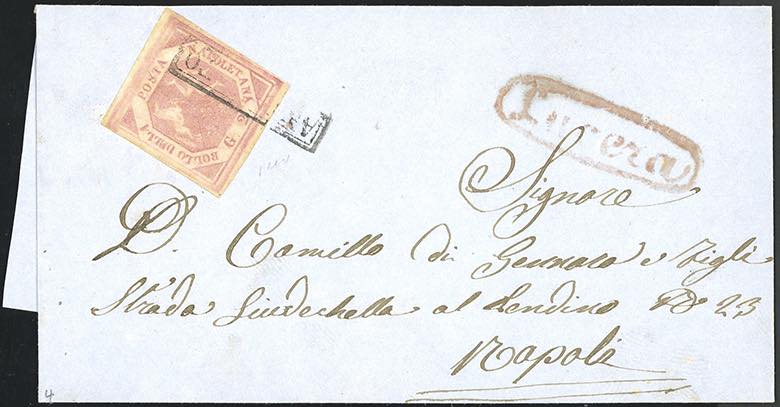 BOLLO DELLA
POSTA
NAPOLETANA
G 2
Lucera
Signore
D. Camillo di Gennaro e Figli
Strada Giudechella al Pendino No 23
Napoli
4